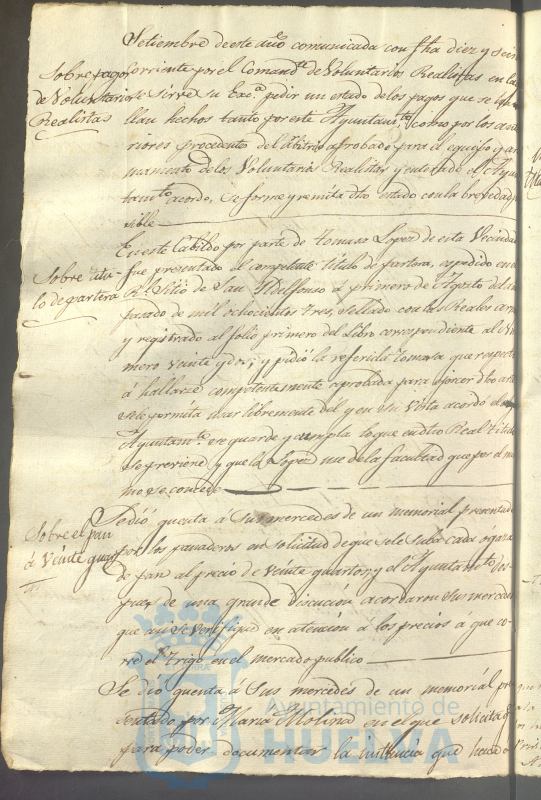 Setiembre de este año comunicada con fha diez y seis
Sobre pagos
de Voluntarios
Realistas
corriente por el Comandte de Voluntarios Realistas en la
se sirve su Exca pedir un estado de los pagos que se
llan hechos tanto por este Ayuntamto como por los ante
riores procedente del Arbitrio aprobado para el equipo y ar
mamento de los Voluntarios Realistas y enterado el Ayun
tamto acordo, se forme y remita dho estado con la brevedad po
sible
En este Cabildo por parte de Tomasa Lopez de esta Vecindad
Sobre titu-
lo de partera
fue presentado el competente titulo de partera, espedido en el
Rl Sitio de San Ildefonso a primero de Agosto del año
pasado de mil ochocientos tres, sellado con las Reales armas
y registrado al folio primero del Libro correspondiente al Nu
mero veinte y dos; y pidió la referida Tomasa que respecto
á hallarse competentemente aprobada para ejercer dho arte
se le permita usar libremente del y en su vista acordó el
Ayuntamto se guarde y cumpla lo que en dho Real titulo
se previene y que la Lopez use de la facultad que por el mis
mo se concede
Sobre el pan
á veinte quartos
Se dió quenta á Sus mercedes de un memorial presentado
por los panaderos en solicitud de que se le suba cada ogaza
de pan al precio de veinte quartos; y el Ayuntamto des
pues de una grande discucion acordaron sus mercedes
que asi se verifique en atencion á los precios a que co-
rre el trigo en el mercado publico
Se dió quenta á Sus mercedes de un memorial pre
sentado por Maria Molina en el que solicita q
para poder documentar la instancia que hace
Ayuntamiento de
HUELVA